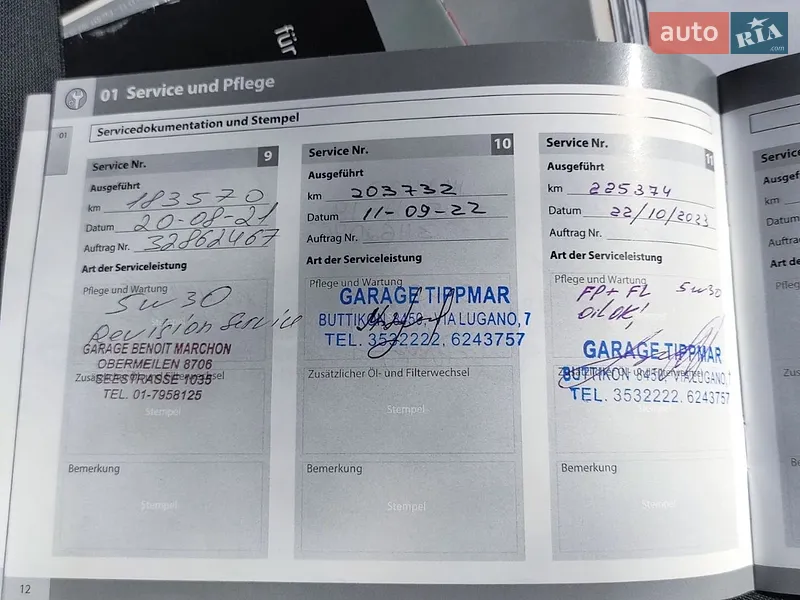 auto RIA .com
für
01 Service und Pflege
01
Servicedokumentation und Stempel
Service Nr. 9
Ausgeführt
km 183570
Datum 20-08-21
Auftrag Nr. 32862467
Art der Serviceleistung
Pflege und Wartung
5w30
Revision Service
GARAGE BENOIT MARCHON
OBERMEILEN 8706
SEESTRASSE 1035
TEL. 01-7958125
Zusätzlicher Öl- und Filterwechsel
Stempel
Bemerkung
Stempel
Service Nr. 10
Ausgeführt
km 203732
Datum 11-09-22
Auftrag Nr.
Art der Serviceleistung
Pflege und Wartung
GARAGE TIPPMAR
BUTTIKON 8450, VIA LUGANO, 7
TEL. 3532222, 6243757
Zusätzlicher Öl- und Filterwechsel
Stempel
Bemerkung
Stempel
Service Nr. 11
Ausgeführt
km 225374
Datum 22/10/2023
Auftrag Nr.
Art der Serviceleistung
Pflege und Wartung
FP+FL 5w30
Oil OK!
GARAGE TIPPMAR
BUTTIKON 8450, VIA LUGANO, 7
TEL. 3532222, 6243757
Zusätzlicher Öl- und Filterwechsel
Stempel
Bemerkung
Stempel
Service
Ausgef
km
Datum
Auftra
Art de
Pfleg
Zus
Be
12